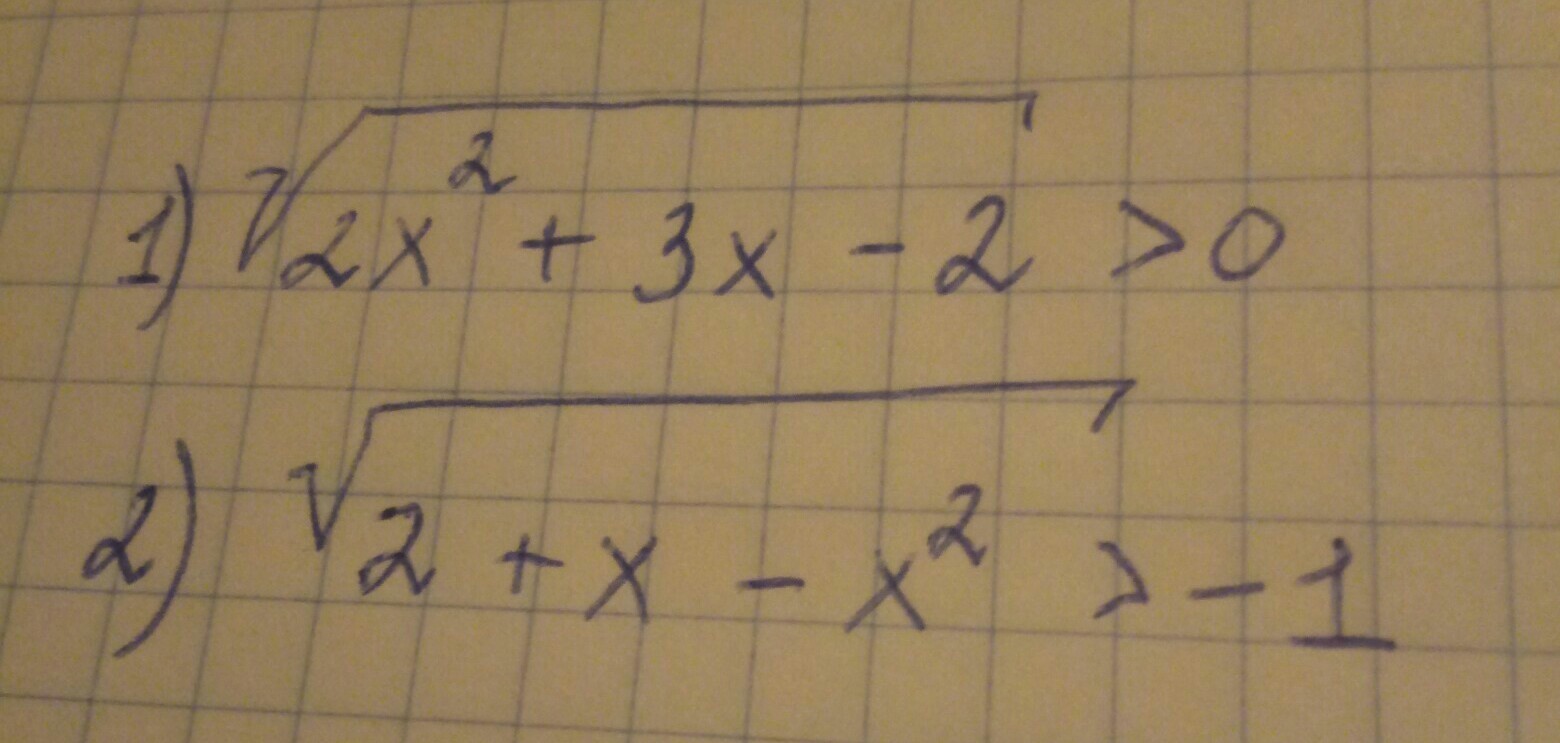 1) √(2x² + 3x - 2) > 0
2) √(2 + x - x²) > -1